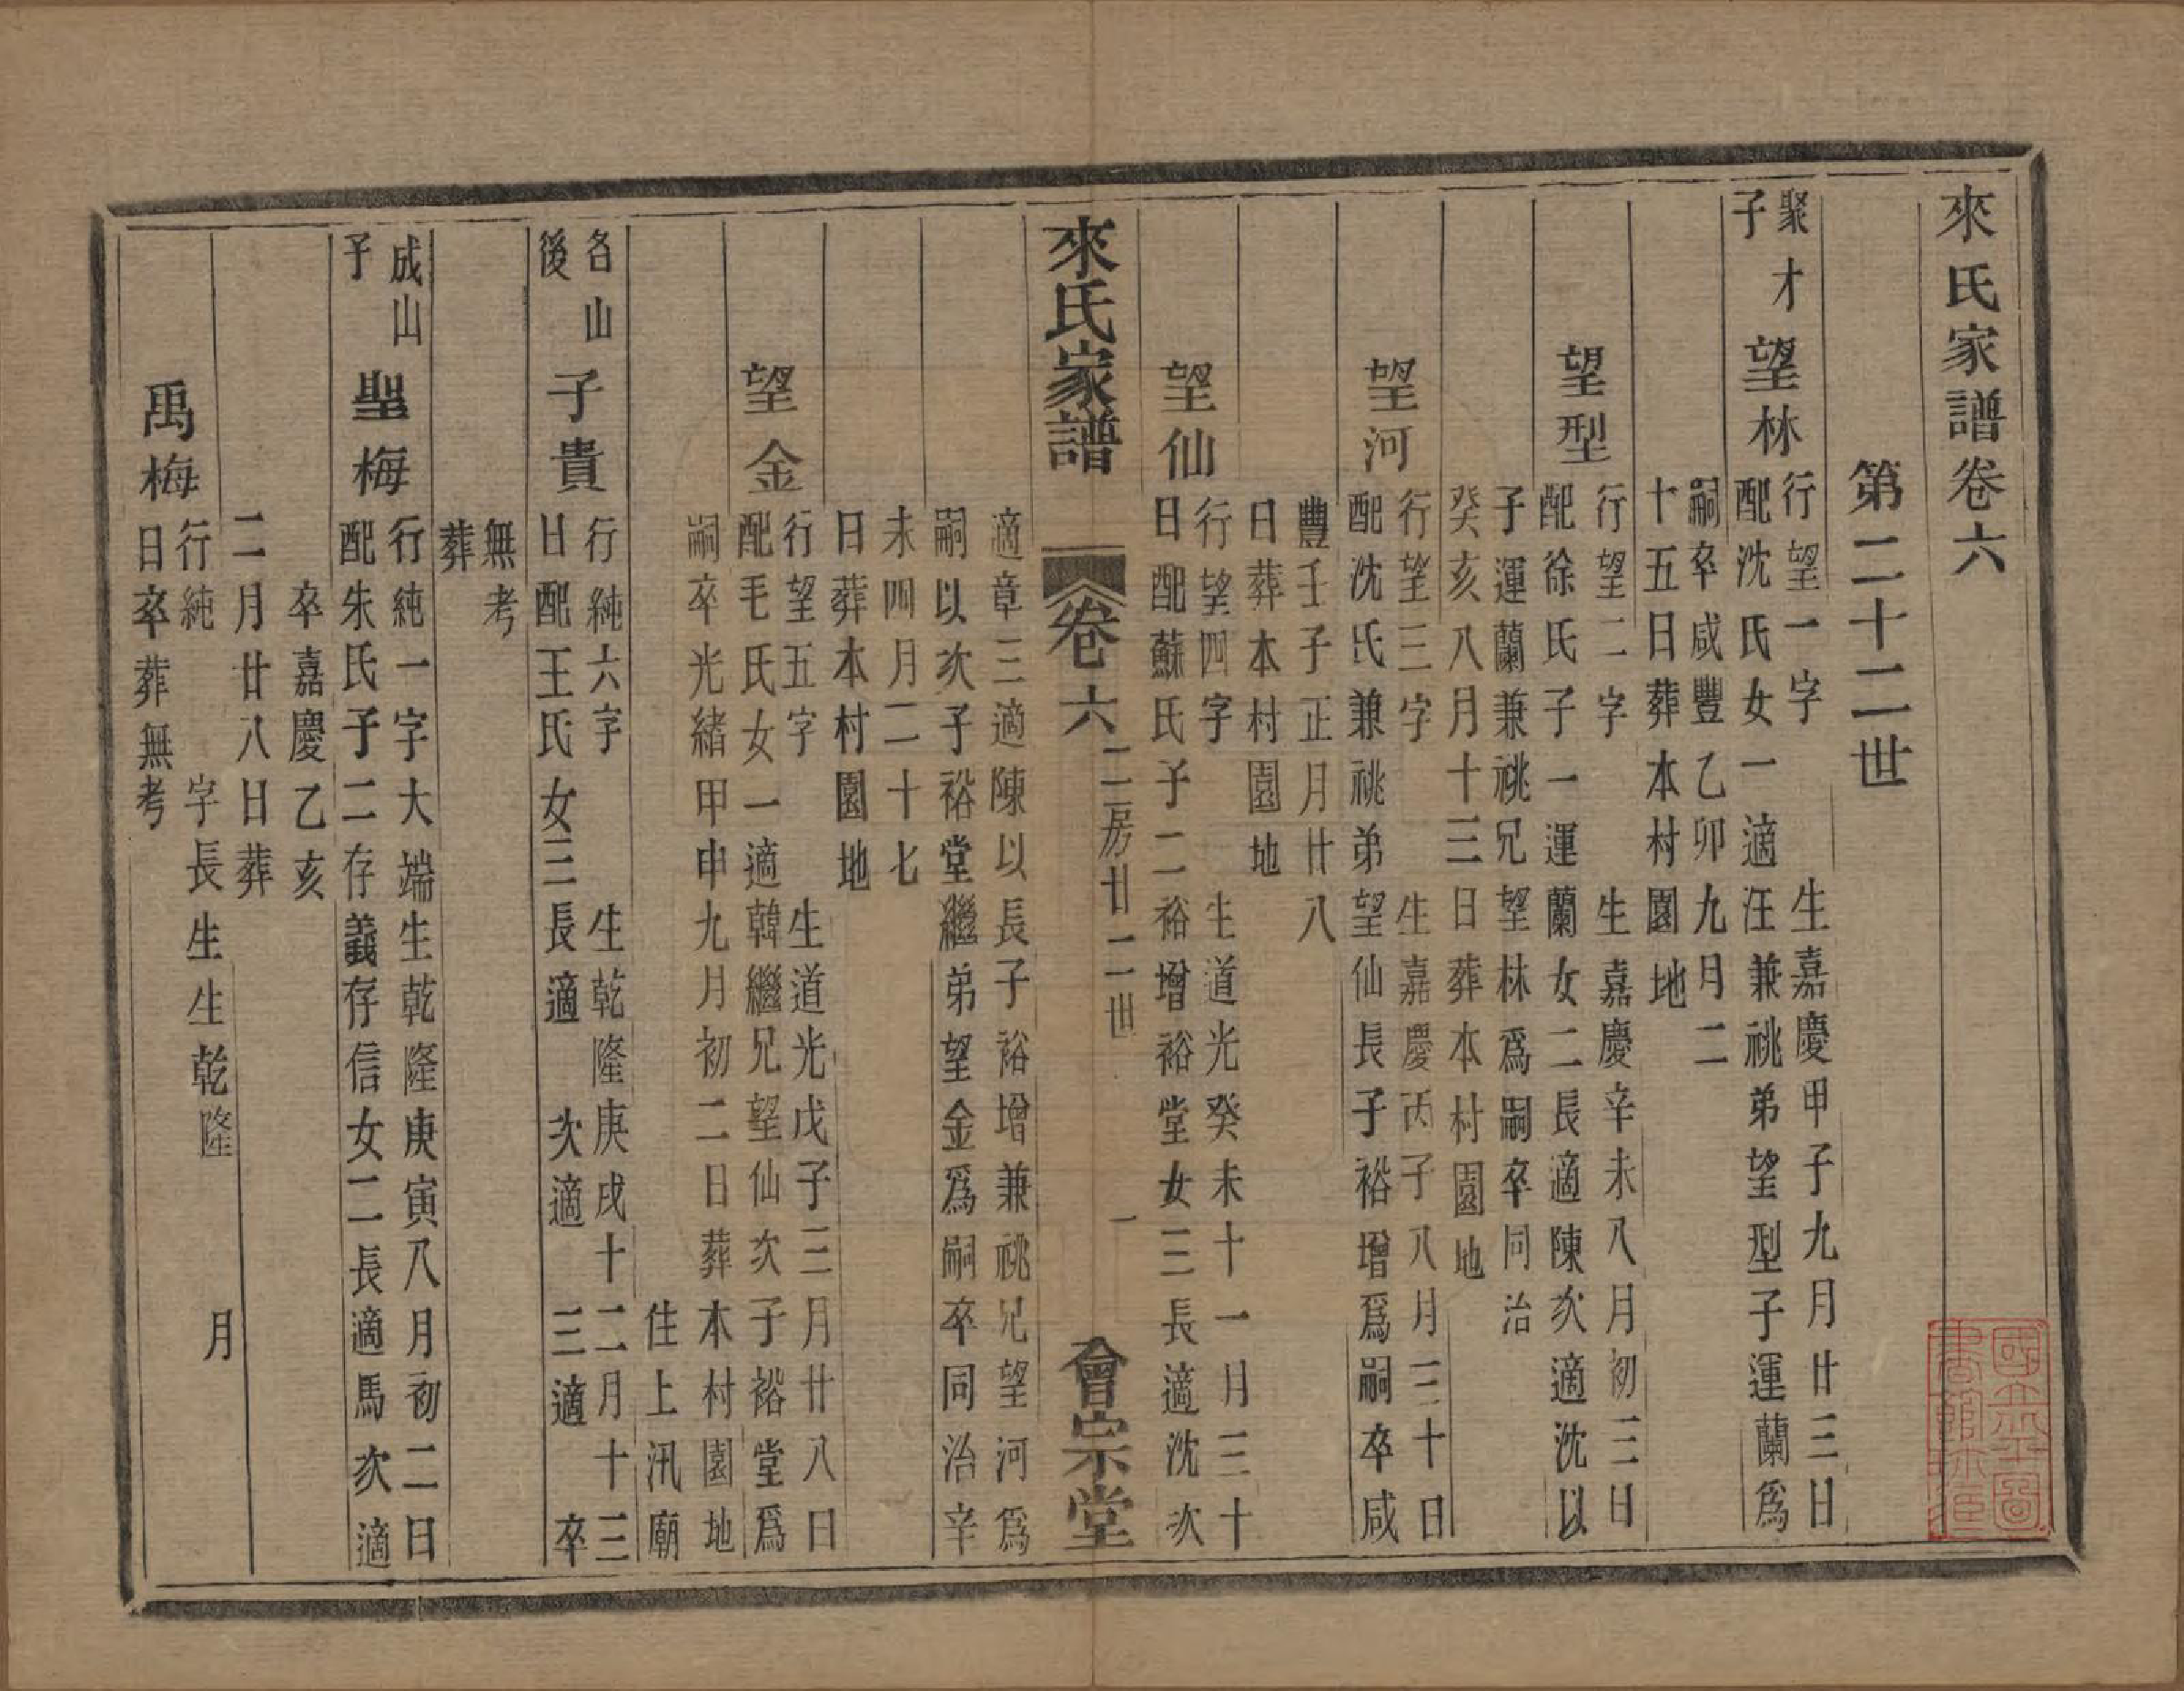 來氏家譜卷六
第二十二世
聚才子
望林
行望一字　生嘉慶甲子九月廿三日
配沈氏女一適汪兼祧弟望型子運蘭爲
嗣卒咸豐乙卯九月二
十五日葬本村園地
望型
行望二字　生嘉慶辛未八月初三日
配徐氏子一運蘭女二長適陳次適沈以
子運蘭兼祧兄望林爲嗣卒同治
癸亥八月十三日葬本村園地
望河
行望三字　生嘉慶丙子八月三十日
配沈氏兼祧弟望仙長子裕增爲嗣卒咸
豐壬子正月廿八
日葬本村園地
望仙
行望四字　生道光癸未十一月三十
日配蘇氏子二裕增裕堂女三長適沈次
來氏家譜　卷六　二房廿二世　一　會宗堂
適章三適陳以長子裕增兼祧兄望河爲
嗣以次子裕堂繼弟望金爲嗣卒同治辛
未四月二十七
日葬本村園地
望金
行望五字　生道光戊子三月廿八日
配毛氏女一適韓繼兄望仙次子裕堂爲
嗣卒光緒甲申九月初二日葬本村園地
住上汛廟
名山後
子貴
行純六字　生乾隆庚戌十二月十三
日配王氏女三長適　次適　三適　卒
無考
葬
成山子
聖梅
行純一字大端生乾隆庚寅八月初二日
配朱氏子二存義存信女二長適馬次適
卒嘉慶乙亥
二月廿八日葬
禹梅
行純　字長生生乾隆　月
日卒葬無考